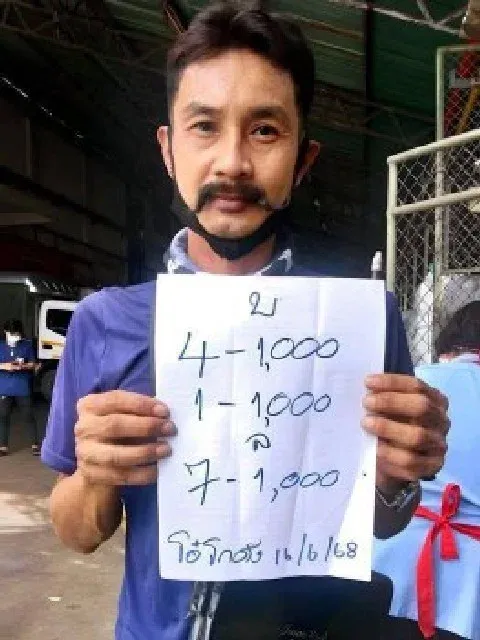 บ
4-1,000
1-1,000
ล
7-1,000
โอ๋โกดัง 16/6/68